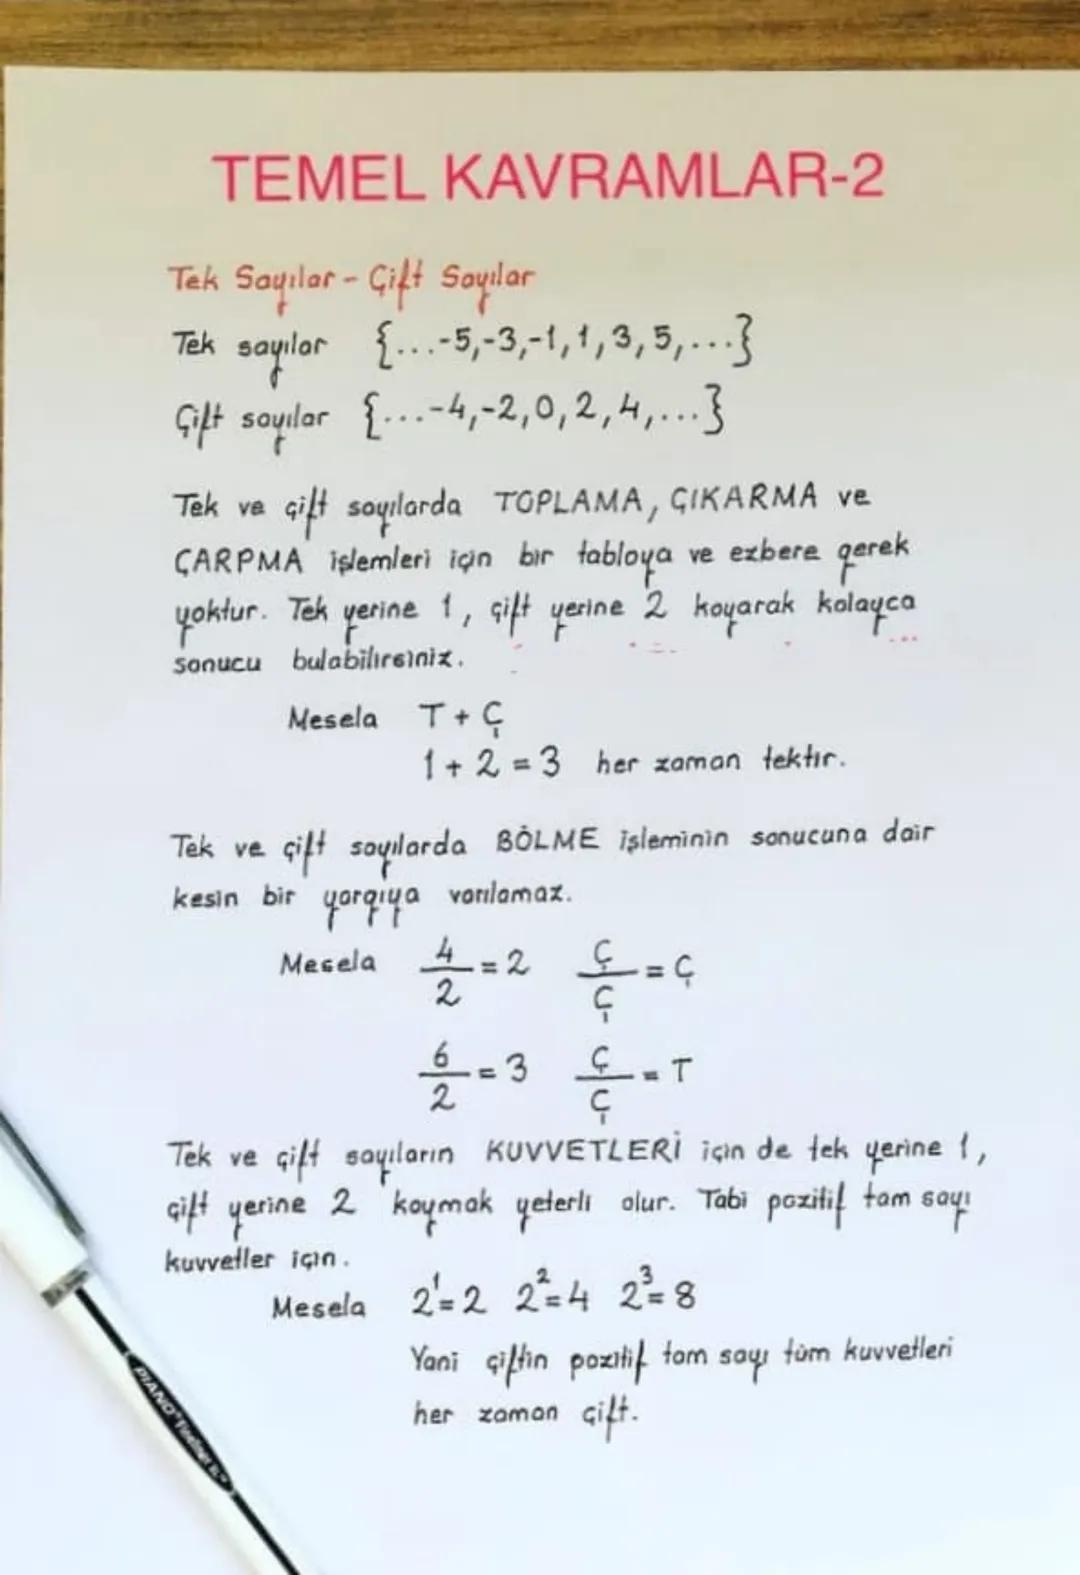 TEMEL KAVRAMLAR-2
Tek Sayılar - Çift Sayılar
Tek sayılar {...-5,-3,-1,1,3,5,...}
Çift sayılar {...-4,-2,0,2,4,...}
Tek ve çift sayılarda TOPLAMA, ÇIKARMA ve
ÇARPMA işlemleri için bir tabloya ve ezbere gerek
yoktur. Tek yerine 1, çift yerine 2 koyarak kolayca
sonucu bulabilirsiniz.
Mesela T + Ç
1 + 2 = 3 her zaman tektir.
Tek ve çift sayılarda BÖLME işleminin sonucuna dair
kesin bir yargıya varılamaz.
Mesela 4/2 = 2 Ç/Ç = Ç
6/2 = 3 Ç/Ç = T
Tek ve çift sayıların KUVVETLERİ için de tek yerine 1,
çift yerine 2 koymak yeterli olur. Tabi pozitif tam sayı
kuvvetler için.
Mesela 2¹=2 2²=4 2³=8
Yani çiftin pozitif tam sayı tüm kuvvetleri
her zaman çift.
PIANO